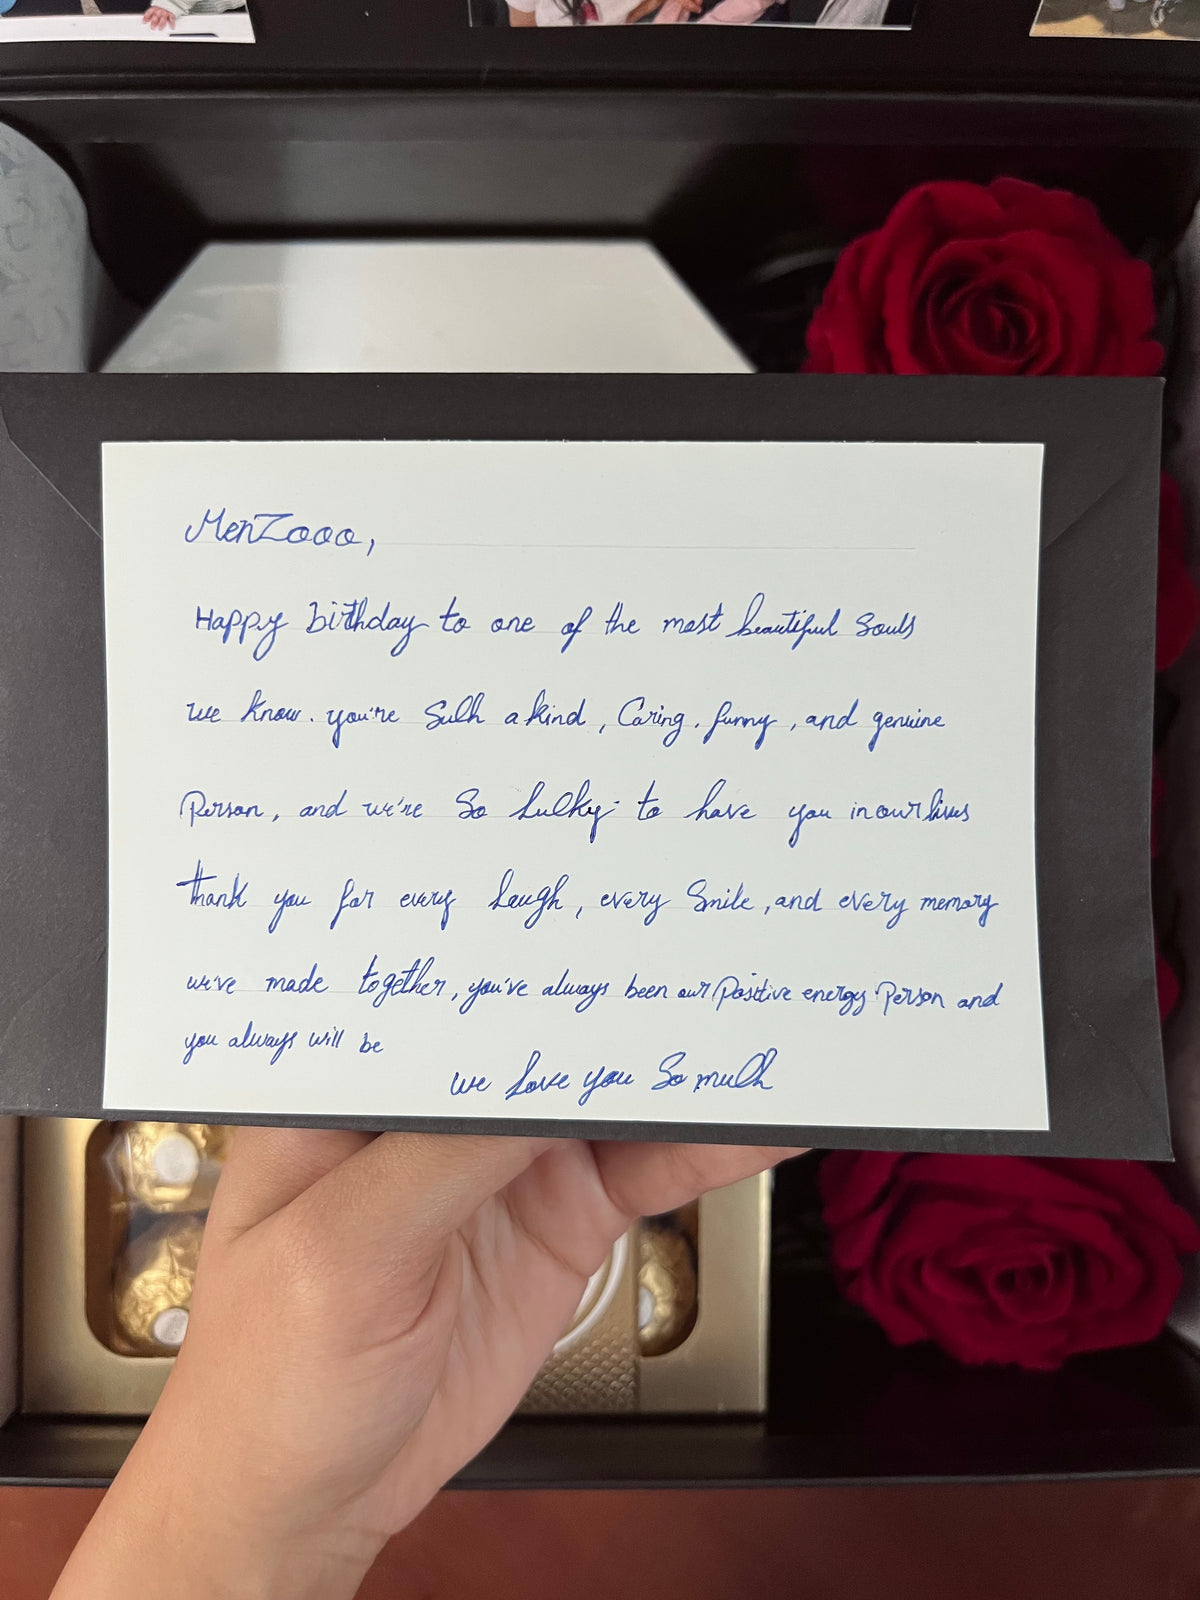 MenZooo,
Happy birthday to one of the most beautiful souls
we know. you're such a kind, Caring, funny, and genuine
Person, and we're so lucky to have you in our lives
thank you for every laugh, every smile, and every memory
we've made together, you've always been our Positive energy Person and
you always will be
we love you so much